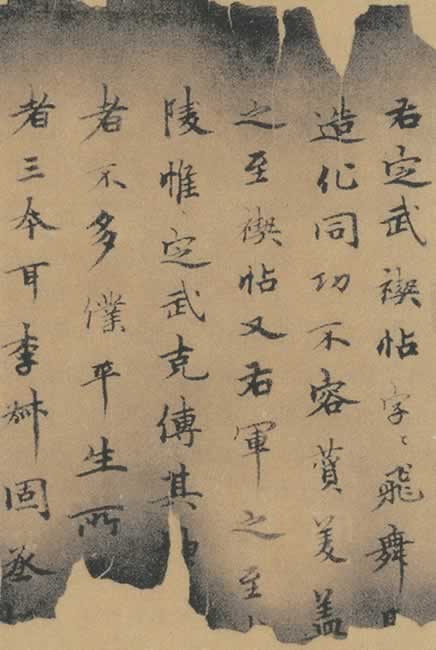 右定武禊帖字〻飛舞
造化同功不容贊美蓋
之至禊帖又右軍之至
陵惟〻定武克傳其
者不多僕平生所
者三本耳李𣂏固丞